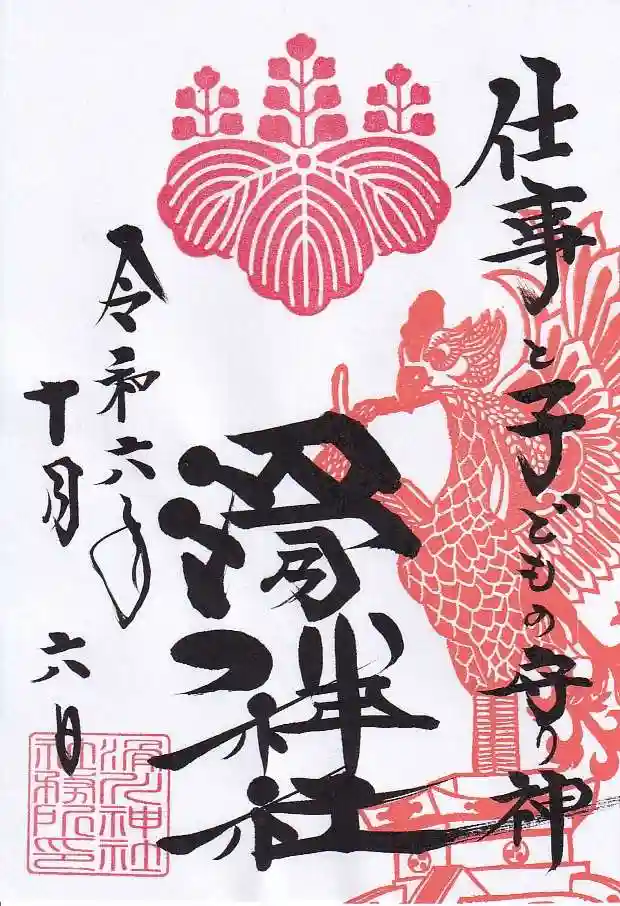 仕事と子どもの守り神
滑川神社
令和六年
十月六日
滑川神社
社務所印